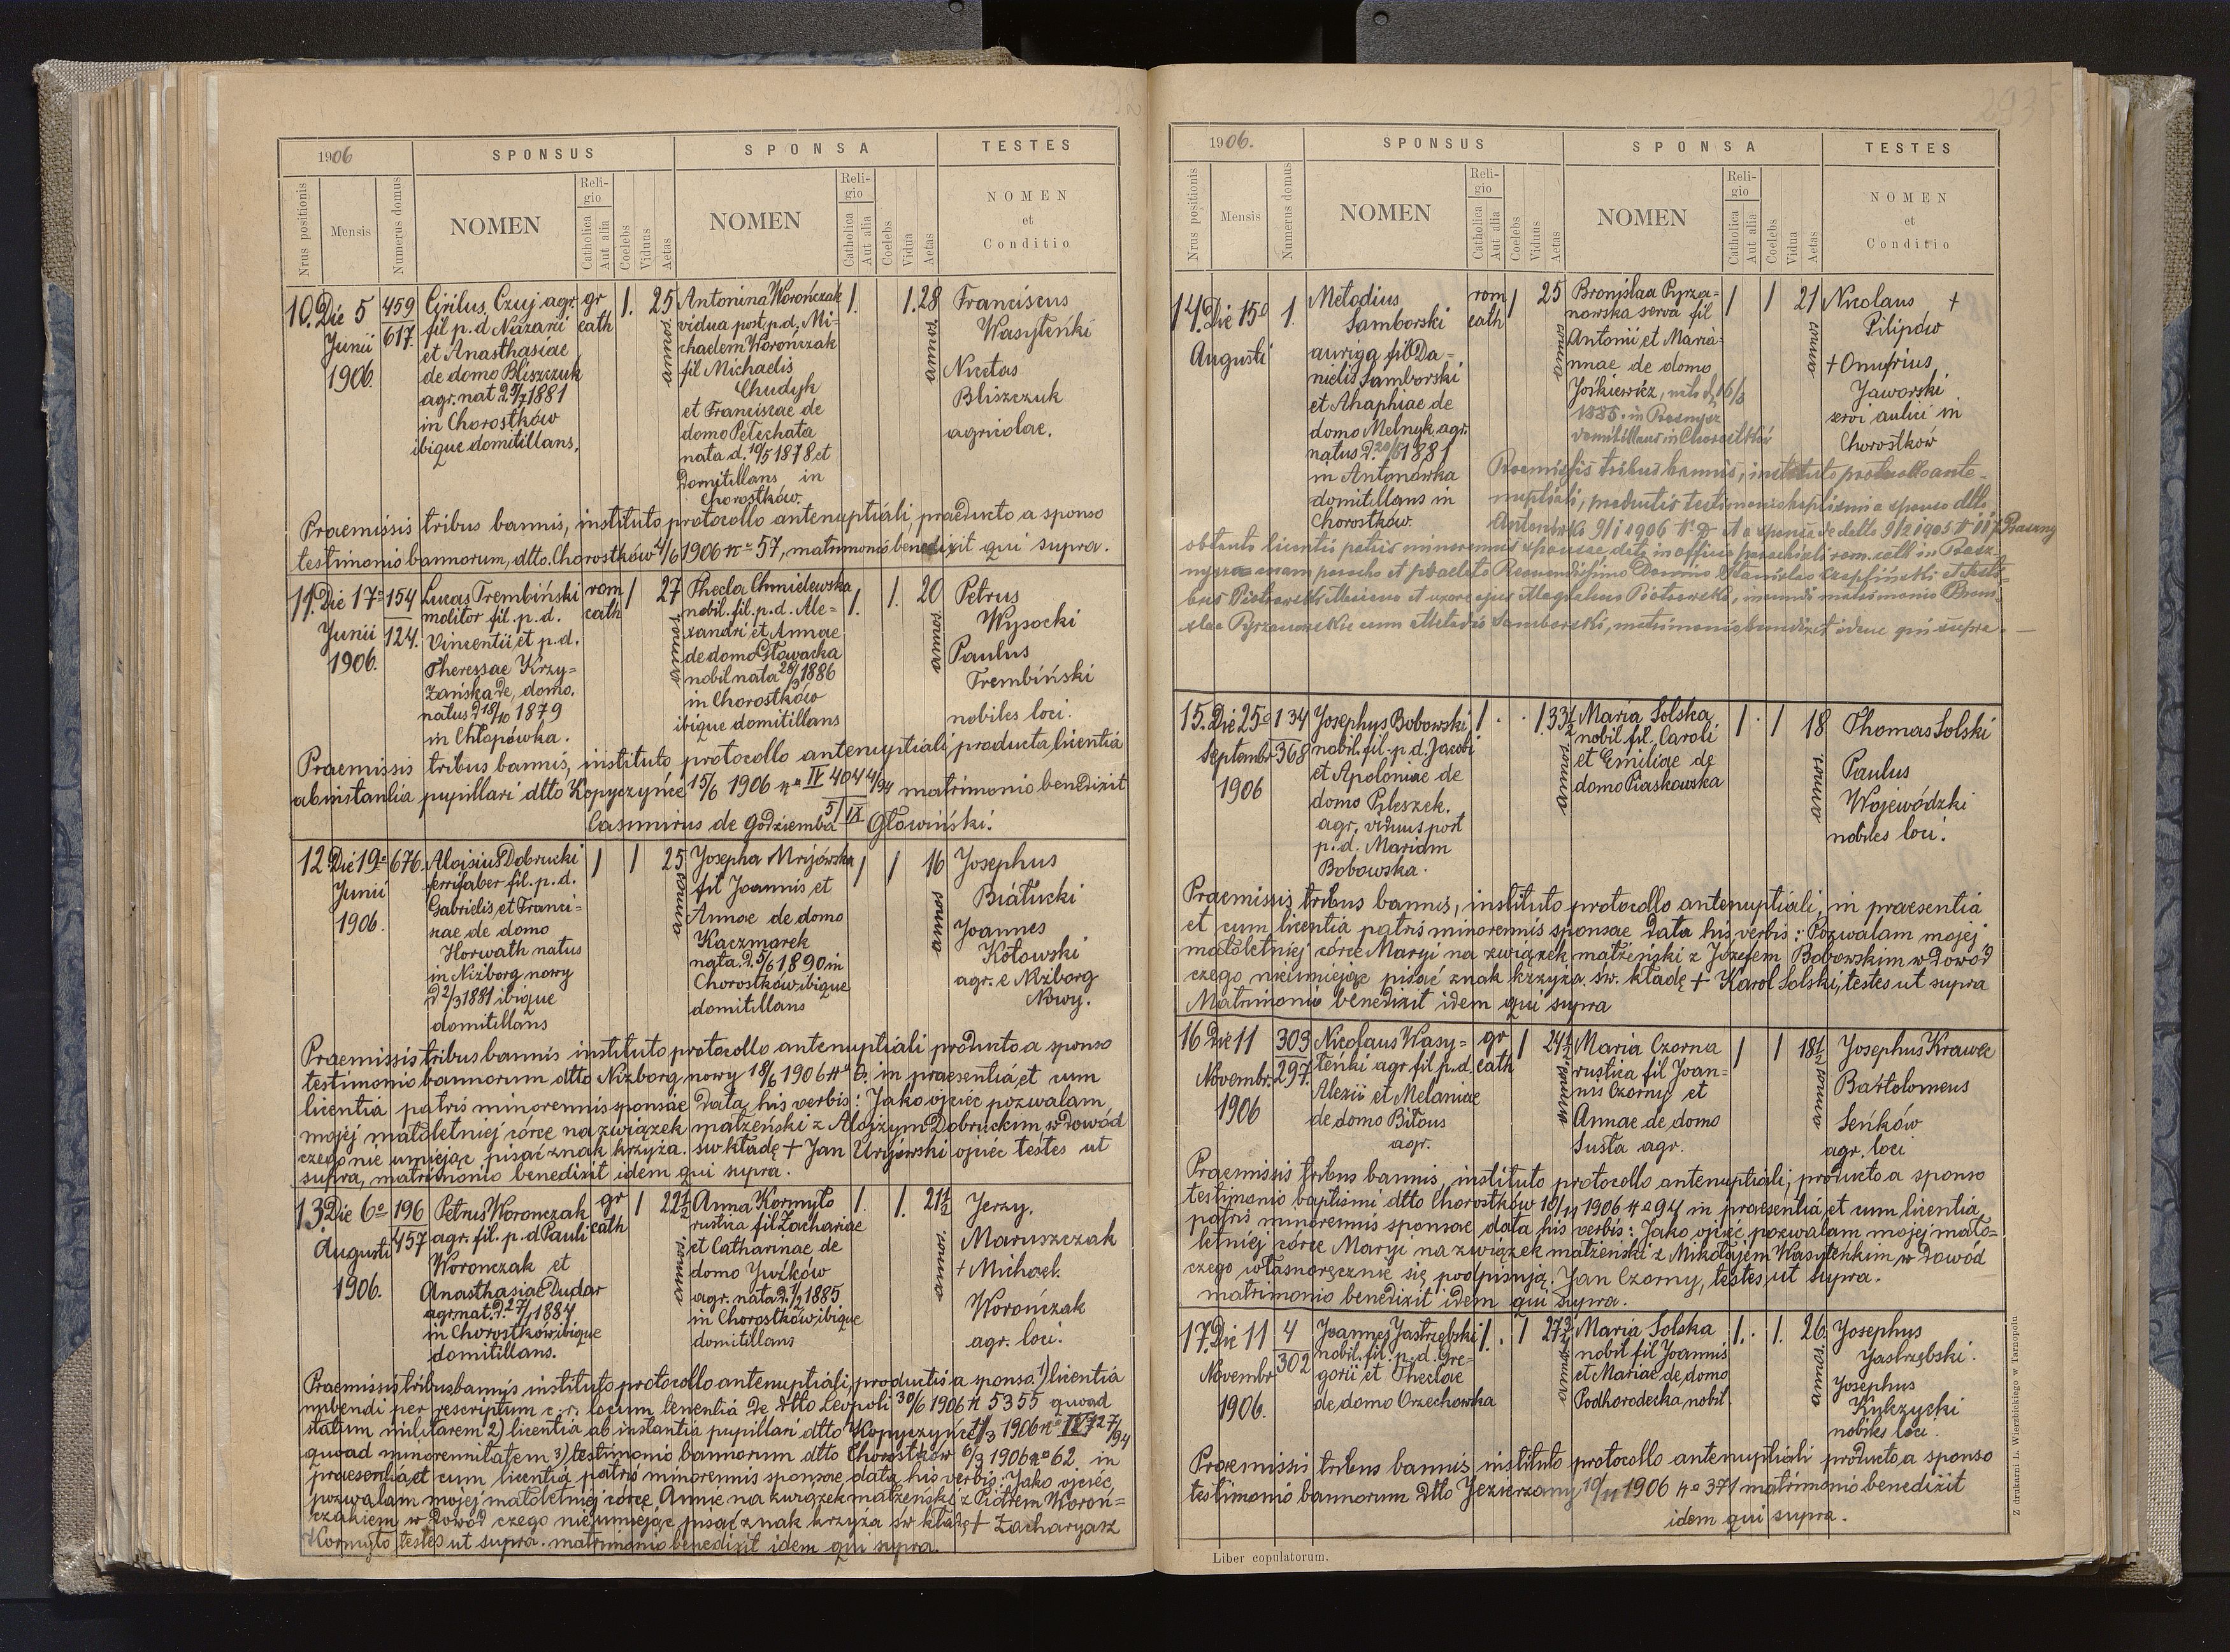 1906
SPONSUS
SPONSA
TESTES
Nrus positionis
Mensis
Numerus domus
NOMEN
Religio
Catholica
Aut alia
Coelebs
Viduus
Aetas
NOMEN
Religio
Catholica
Aut alia
Coelebs
Vidua
Aetas
NOMEN
et
Conditio
10. Die 5
Junii
1906.
459
617.
Cirilus Czuj agr.
fil p. d. Nazarii
et Anasthasiae
de domo Bliszczuk
agr. nat
1881
in Chorostków
ibique domitillans.
gr
cath
1.
25
annos
Antonina Worończak
vidua post p. d. Mi-
chaelem Worończak
fil Michaelis
Chudyk
et Franciscae de
domo Petechata
nata d. 10/5 1878 et
Domitillans in
Chorostków.
1.
1.
28
annos
Franciscus
Wasyleńki
Nicetas
Bliszczuk
agricolae.
Praemissis tribus bannis, instituto protocollo antenuptiali praeducto a sponso
testimonio bannorum, dtto. Chorostków 4/6 1906 no 57, matrimonio benedixit qui supra.
11. Die 17o
Junii
1906.
154
124.
Lucas Trembiński
molitor fil. p. d.
Vincentii et p. d.
Theressae Krzy-
żańska de domo.
natus d 18/10 1879
in Chłopówka.
rom
cath
1
27
annos
Thecla Chmielewska
nobil. fil. p. d. Ale-
xandri et Annae
de domo Głowacka
nobil nata 28/9 1886
in Chorostków
ibique domitillans
1.
1.
20
annos
Petrus
Wysocki
Paulus
Trembiński
nobiles loci.
Praemissis tribus bannis, instituto protocollo antenuptiali producta licentia
ab instantia pupillari dtto Kopyczyńce 15/6 1906 no IV 404 4/94 matrimonio benedixit
5/IX
Casimirus de Godziemba Głowiński.
12 Die 19o
Junii
1906.
676.
Aloisius Dobrucki
ferrifaber fil. p. d.
Gabrielis et Franci-
scae de domo
Horwath natus
in Niżborg nowy
d 2/3 1881 ibique
domitillans
1
1
25
annos
Josepha Mrijówska
fil Joannis et
Annae de domo
Kaczmarek
nata. d. 5/6 1890 in
Chorostków ibique
domitillans
1
1
16
annos
Josephus
Białucki
Joannes
Kotowski
agr. e Niżborg
Nowy.
Praemissis tribus bannis instituto protocollo antenuptiali producto a sponso
testimonio bannorum dtto Niżborg nowy 18/6 1906 no in praesentia et cum
licentia patris minorennis sponsae data his verbis: Jako ojciec pozwalam
mojej małoletniej córce na związek małżeński z Alojzym Dobruckim w dowód
czego nie umiejąc pisać znak krzyża. św kładę + Jan Urijowski ojciec testes ut
supra, matrimonio benedixit idem qui supra.
13 Die 6o
Augusti
1906.
196
457
Petrus Woronczak
agr. fil. p. d Pauli
Woronczak et
Anasthasiae Dudar
agr nat. d. 27/1 1884
in Chorostków ibique
domitillans.
gr
cath
1
22½
annos.
Anna Kormyło
rustica fil Zachariae
et Catharinae de
domo Juzków
agr. nata d. 1/2 1885
in Chorostków ibique
domitillans
1.
1.
21½
annos.
Jerzy.
Maruszczak
+ Michael.
Worończak
agr. loci.
Praemissis tribus bannis instituto protocollo antenuptiali, productis a sponso. 1) licentia
nubendi per rescriptum c. r. locum tenentia de dtto Leopoli 30/6 1906 n 5355 quoad
statum militarem 2) licentia ab instantia pupillari dtto Kopyczyńce 1906 no
quoad minorennitatem 3) testimonio bannorum dtto Chorostków 6/3 1906 no 62. in
praesentia et cum licentia patris minorennis sponsae data his verbis: Jako ojciec
pozwalam mojej małoletniej córce Annie na związek małżeński z Piotrem Woroń-
czakiem w dowód czego nieumiejąc pisać znak krzyża św kładę + Zacharyasz
Kormyło testes ut supra. matrimonio benedixit idem qui supra.
293
1906.
SPONSUS
SPONSA
TESTES
Nrus positionis
Mensis
Numerus domus
NOMEN
Religio
Catholica
Aut alia
Coelebs
Viduus
Aetas
NOMEN
Religio
Catholica
Aut alia
Coelebs
Vidua
Aetas
NOMEN
et
Conditio
14. Die 15o
Augusti
1.
Metodius
Samborski
auriga fil Da-
nielis Samborski
et Ahaphiae de
domo Melnyk agr.
natus d. 1881
in Antonówka
domitillans in
Chorostków.
rom
cath
1
25
annos
Bronislaa Pyrza-
nowska serva fil
Antonii et Maria-
nnae de domo
Jośkiewicz,
1885. in
domitillans in Chorostków
1
1
21
annos
Nicolaus +
Pilipów
+ Onufrius
Jaworski
servi aulici in
Chorostków
Praemissis tribus bannis, instituto protocollo ante-
nuptiali, productis testimonio baptismi a sponso dtto
Antonówka 9/1 1906 et a sponsa de dtto 9/2 1905
obtenta licentia patris minorennis sponsae, data in officio parochiali rom. cath in
coram parocho et praelato Reverendissimo Domino Stanislao et testi-
bus Piotrowski et uxore ejus Magdalena Piotrowska, ineundi matrimonio Broni-
slaa Pyrzanowska cum Metodio Samborski, matrimonio benedixit idem qui supra.
15. Die 25o
Septembr
1906
134
368
Josephus Bobowski
nobil. fil. p. d. Jacobi
et Apoloniae de
domo Pileszek.
agr. viduus post
p. d. Mariam
Bobowska.
1.
1
33½
annos
Maria Solska
nobil fil. Caroli
et Emiliae de
domo Piaskowska
1
1
18
annos
Thomas Solski
Paulus
Wojewódzki
nobiles loci.
Praemissis tribus bannis, instituto protocollo antenuptiali, in praesentia
et cum licentia patris minorennis sponsae data his verbis: Pozwalam mojej
małoletniej córce Maryi na związek małżeński z Józefem Bobowskim w dowód
czego nieumiejąc pisać znak krzyża św. kładę + Karol Solski, testes ut supra
Matrimonio benedixit idem qui supra
16 Die 11
Novembr.
1906
303
297.
Nicolaus Wasy-
leńki agr fil p. d.
Alexii et Melaniae
de domo Bitous
agr.
gr
cath
1
24½
annos
Maria Czorna
rustica fil Joan-
nis Czorny et
Annae de domo
Susta agr.
1
1
18½
annos
Josephus Krawec
Bartolomeus
Seńków
agr. loci
Praemissis tribus bannis, instituto protocollo antenuptiali, producto a sponso
testimonio baptismi dtto Chorostków 10/11 1906 no 94 in praesentia et cum licentia
patris minorennis sponsae data his verbis: Jako ojciec pozwalam mojej mało-
letniej córce Maryi na związek małżeński z Mikołajem Wasyleńkim w dowód
czego własnoręcznie się podpisuję. Jan Czorny, testes ut supra.
matrimonio benedixit idem qui supra.
17. Die 11
Novembr
1906.
4
302
Joannes Jastrzębski
nobil. fil. p. d. Gre-
gorii et Theclae
de domo Orzechowska
1.
1
27¾
annos
Maria Solska
nobil fil Joannis
et Mariae de domo
Podhorodecka nobil.
1.
1.
26.
annos
Josephus
Jastrzębski.
Josephus
Kulczycki
nobiles loci.
Praemissis tribus bannis instituto protocollo antenuptiali producto a sponso
testimonio bannorum dtto Jezierzany 10/11 1906 no 371 matrimonio benedixit
idem qui supra.
Liber copulatorum.
Z drukarni L. Wierzbickiego w Tarnopolu